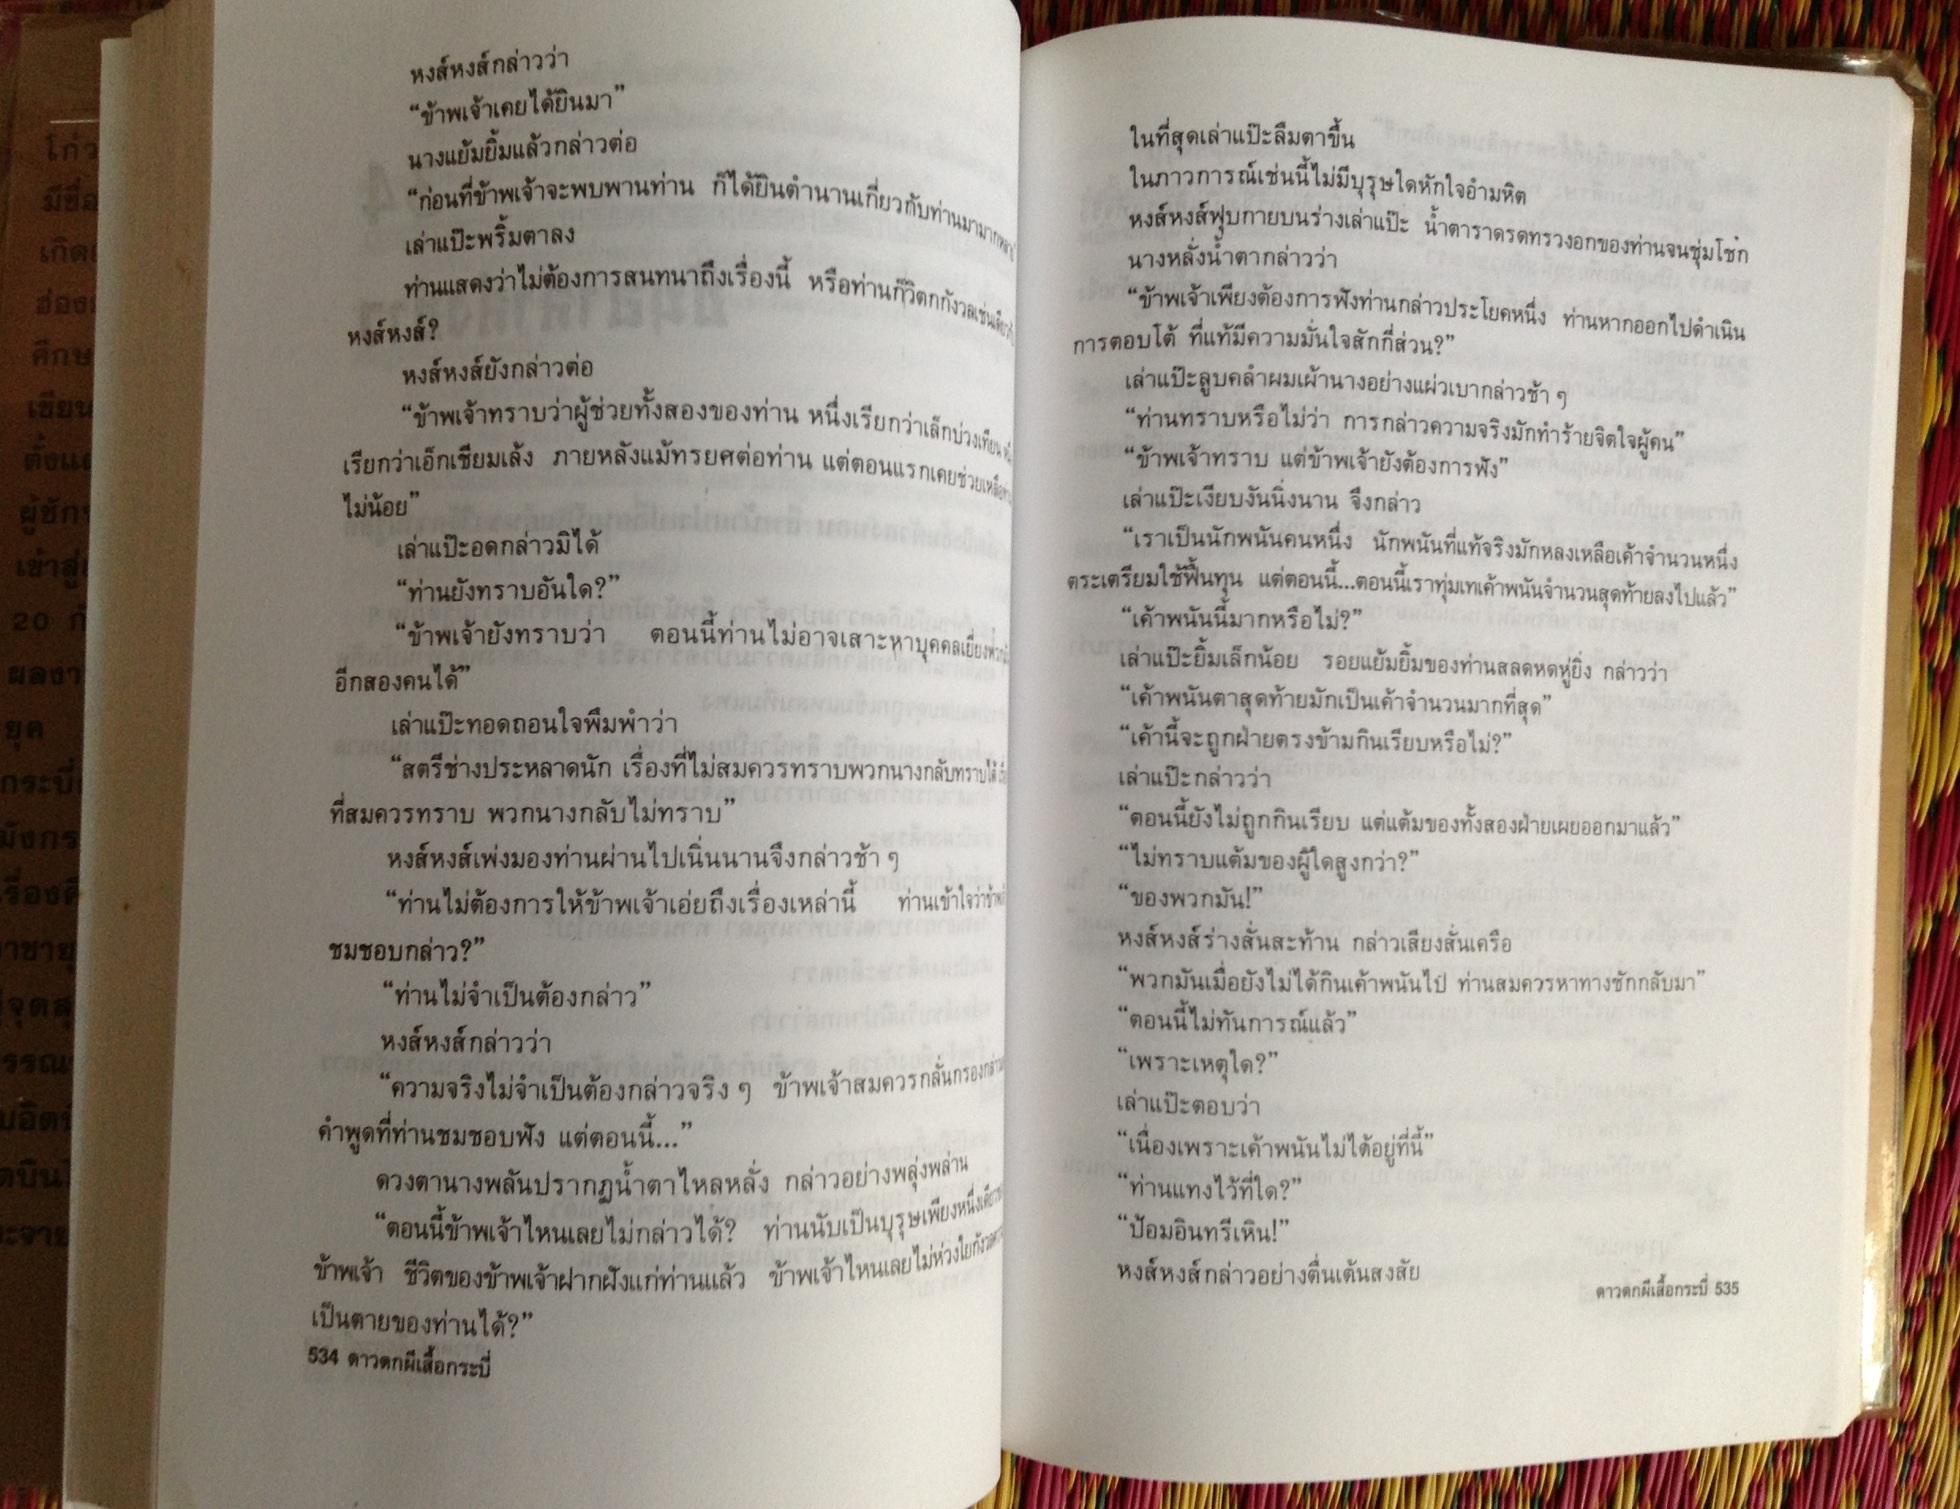 หงส์หงส์กล่าวว่า
“ข้าพเจ้าเคยได้ยินมา”
นางแย้มยิ้มแล้วกล่าวต่อ
“ก่อนที่ข้าพเจ้าจะพบพานท่าน ก็ได้ยินตำนานเกี่ยวกับท่านมามากหลาย
เล่าแป๊ะพริ้มตาลง
ท่านแสดงว่าไม่ต้องการสนทนาถึงเรื่องนี้ หรือท่านก็วิตกกังวลเช่นเดียวกับ
หงส์หงส์?
หงส์หงส์ยังกล่าวต่อ
“ข้าพเจ้าทราบว่าผู้ช่วยทั้งสองของท่าน หนึ่งเรียกว่าเล็กบ่วงเทียน
เรียกว่าเอ็กเซียมเล้ง ภายหลังแม้ทรยศต่อท่าน แต่ตอนแรกเคยช่วยเหลือท่าน
ไม่น้อย”
เล่าแป๊ะอดกล่าวมิได้
“ท่านยังทราบอันใด?”
“ข้าพเจ้ายังทราบว่า ตอนนี้ท่านไม่อาจเสาะหาบุคคลเยี่ยง
อีกสองคนได้”
เล่าแป๊ะทอดถอนใจพึมพำว่า
“สตรีช่างประหลาดนัก เรื่องที่ไม่สมควรทราบพวกนางกลับทราบได้
ที่สมควรทราบ พวกนางกลับไม่ทราบ”
หงส์หงส์เพ่งมองท่านผ่านไปเนิ่นนานจึงกล่าวช้า ๆ
“ท่านไม่ต้องการให้ข้าพเจ้าเอ่ยถึงเรื่องเหล่านี้ ท่านเข้าใจว่า
ชมชอบกล่าว?”
“ท่านไม่จำเป็นต้องกล่าว”
หงส์หงส์กล่าวว่า
“ความจริงไม่จำเป็นต้องกล่าวจริง ๆ ข้าพเจ้าสมควรกลั่นกรองกล่าว
คำพูดที่ท่านชมชอบฟัง แต่ตอนนี้...”
ดวงตานางพลันปรากฏน้ำตาไหลหลั่ง กล่าวอย่างพลุ่งพล่าน
“ตอนนี้ข้าพเจ้าไหนเลยไม่กล่าวได้? ท่านนับเป็นบุรุษเพียงหนึ่งเดียว
ข้าพเจ้า ชีวิตของข้าพเจ้าฝากฝังแก่ท่านแล้ว ข้าพเจ้าไหนเลยไม่ห่วงใยกังวล
เป็นตายของท่านได้?”
534 ดาวตกผีเสื้อกระบี่
ในที่สุดเล่าแป๊ะลืมตาขึ้น
ในภาวการณ์เช่นนี้ไม่มีบุรุษใดหักใจอำมหิต
หงส์หงส์ฟุบกายบนร่างเล่าแป๊ะ น้ำตาราดรดทรวงอกของท่านจนชุ่มโชก
นางหลั่งน้ำตากล่าวว่า
“ข้าพเจ้าเพียงต้องการฟังท่านกล่าวประโยคหนึ่ง ท่านหากออกไปดำเนิน
การตอบโต้ ที่แท้มีความมั่นใจสักกี่ส่วน?”
เล่าแป๊ะลูบคลำผมเผ้านางอย่างแผ่วเบากล่าวช้า ๆ
“ท่านทราบหรือไม่ว่า การกล่าวความจริงมักทำร้ายจิตใจผู้คน”
“ข้าพเจ้าทราบ แต่ข้าพเจ้ายังต้องการฟัง”
เล่าแป๊ะเงียบงันนิ่งนาน จึงกล่าว
“เราเป็นนักพนันคนหนึ่ง นักพนันที่แท้จริงมักหลงเหลือเค้าจำนวนหนึ่ง
ตระเตรียมใช้ฟื้นทุน แต่ตอนนี้...ตอนนี้เราทุ่มเทเค้าพนันจำนวนสุดท้ายลงไปแล้ว”
“เค้าพนันนี้มากหรือไม่?”
เล่าแป๊ะยิ้มเล็กน้อย รอยแย้มยิ้มของท่านสลดหดหู่ยิ่ง กล่าวว่า
“เค้าพนันตาสุดท้ายมักเป็นเค้าจำนวนมากที่สุด”
“เค้านี้จะถูกฝ่ายตรงข้ามกินเรียบหรือไม่?”
เล่าแป๊ะกล่าวว่า
“ตอนนี้ยังไม่ถูกกินเรียบ แต่แต้มของทั้งสองฝ่ายเผยออกมาแล้ว”
“ไม่ทราบแต้มของผู้ใดสูงกว่า?”
“ของพวกมัน!”
หงส์หงส์ร่างสั่นสะท้าน กล่าวเสียงสั่นเครือ
“พวกมันเมื่อยังไม่ได้กินเค้าพนันไป ท่านสมควรหาทางชักกลับมา”
“ตอนนี้ไม่ทันการณ์แล้ว”
“เพราะเหตุใด?”
เล่าแป๊ะตอบว่า
“เนื่องเพราะเค้าพนันไม่ได้อยู่ที่นี้”
“ท่านแทงไว้ที่ใด?”
“ป้อมอินทรีเหิน!”
หงส์หงส์กล่าวอย่างตื่นเต้นสงสัย
ดาวตกผีเสื้อกระบี่ 535